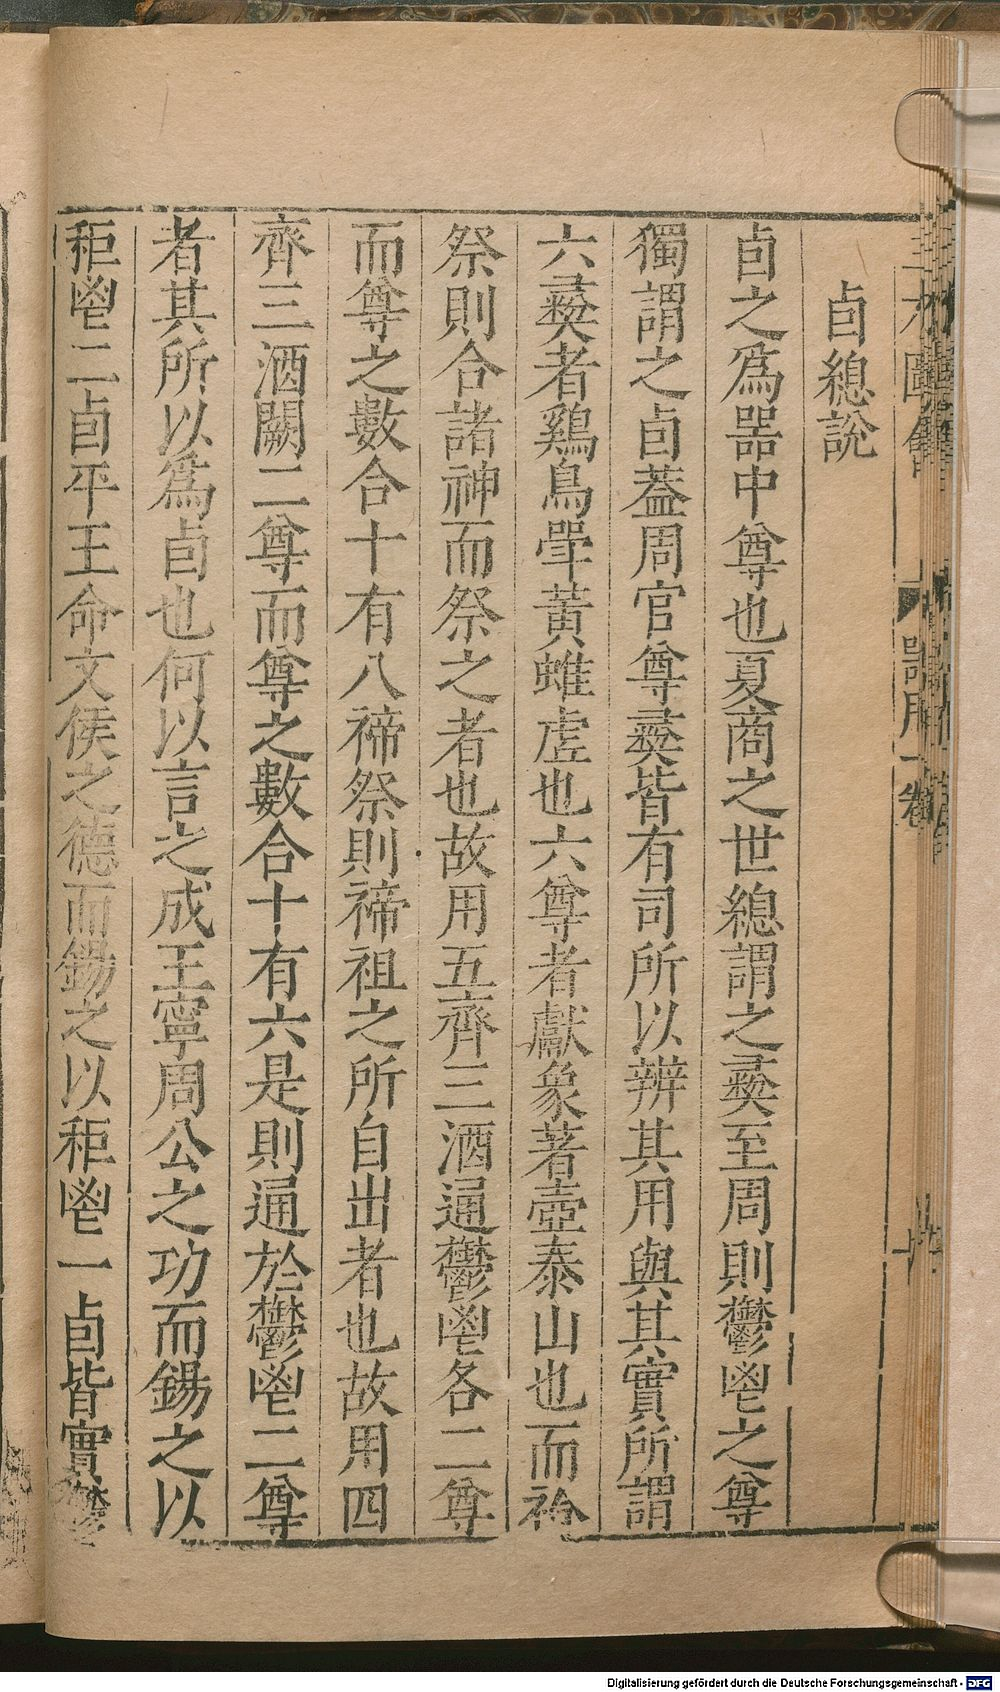 卣總說
卣之爲器中尊也夏商之世總謂之彞至周則鬱鬯之尊
獨謂之卣葢周官尊彞皆有司所以辨其用與其實所謂
六彞者鷄鳥斝黃蜼虗也六尊者獻象著壺泰山也而祫
祭則合諸神而祭之者也故用五齊三酒通鬱鬯各二尊
而尊之數合十有八禘祭則禘祖之所自出者也故用四
齊三酒闕二尊而尊之數合十有六是則通於鬱鬯二尊
者其所以爲卣也何以言之成王寧周公之功而錫之以
秬鬯二卣平王命文侯之德而錫之以秬鬯一卣皆實鬱
器用一卷
Digitalisierung gefördert durch die Deutsche Forschungsgemeinschaft - DFG